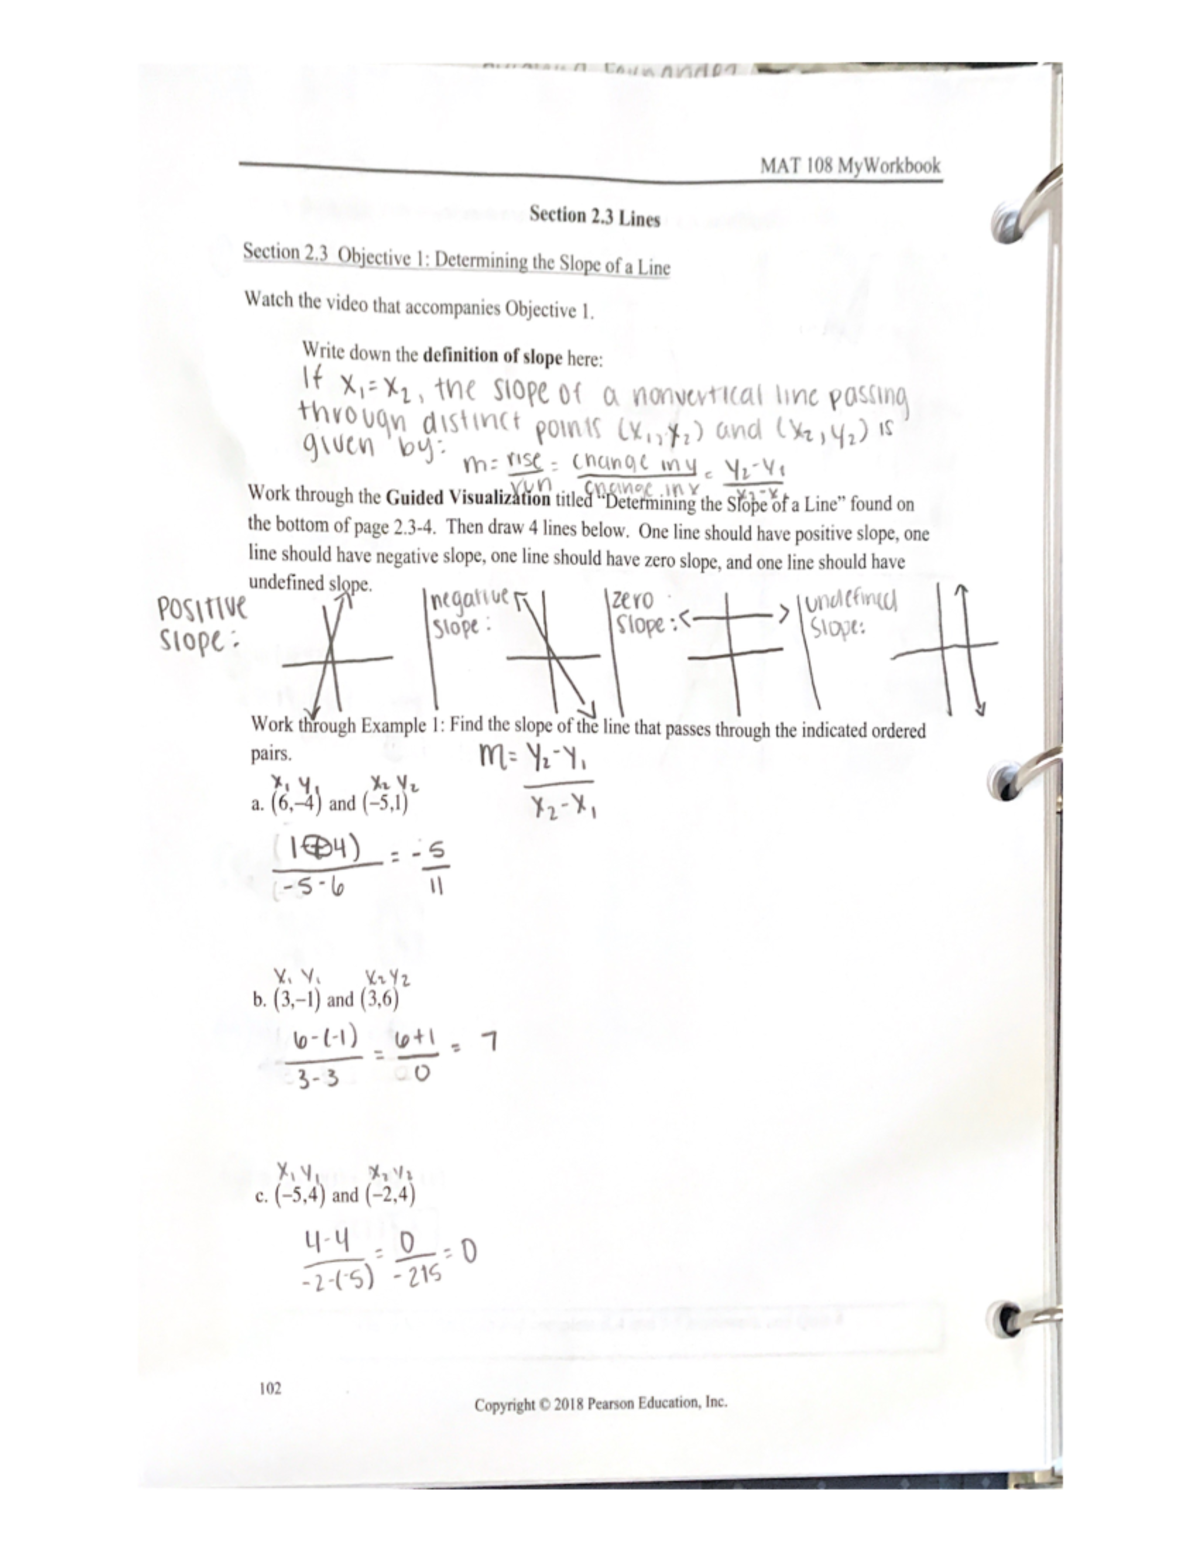 MAT 108 MyWorkbook
Section 2.3 Lines
Section 2.3 Objective 1: Determining the Slope of a Line
Watch the video that accompanies Objective 1.
Write down the definition of slope here:
If x₁=x₂, the slope of a nonvertical line passing
through distinct points (x₁,y₂) and (x₂,y₂) is
given by: m= rise/run = change in y/change in x = y₂-y₁/x₂-x₁
Work through the Guided Visualization titled “Determining the Slope of a Line” found on
the bottom of page 2.3-4. Then draw 4 lines below. One line should have positive slope, one
line should have negative slope, one line should have zero slope, and one line should have
undefined slope.
Positive slope:
negative slope:
zero slope:
undefined slope:
Work through Example 1: Find the slope of the line that passes through the indicated ordered
pairs.
m= y₂-y₁/x₂-x₁
x₁ y₁ x₂ y₂
a. (6,–4) and (–5,1)
(1+4)/-5-6 = -5/11
x₁ y₁ x₂ y₂
b. (3,–1) and (3,6)
6-(-1)/3-3 = 6+1/0 = 7
x₁ y₁ x₂ y₂
c. (–5,4) and (–2,4)
4-4/-2-(-5) = 0/-2+5 = 0
102
Copyright © 2018 Pearson Education, Inc.